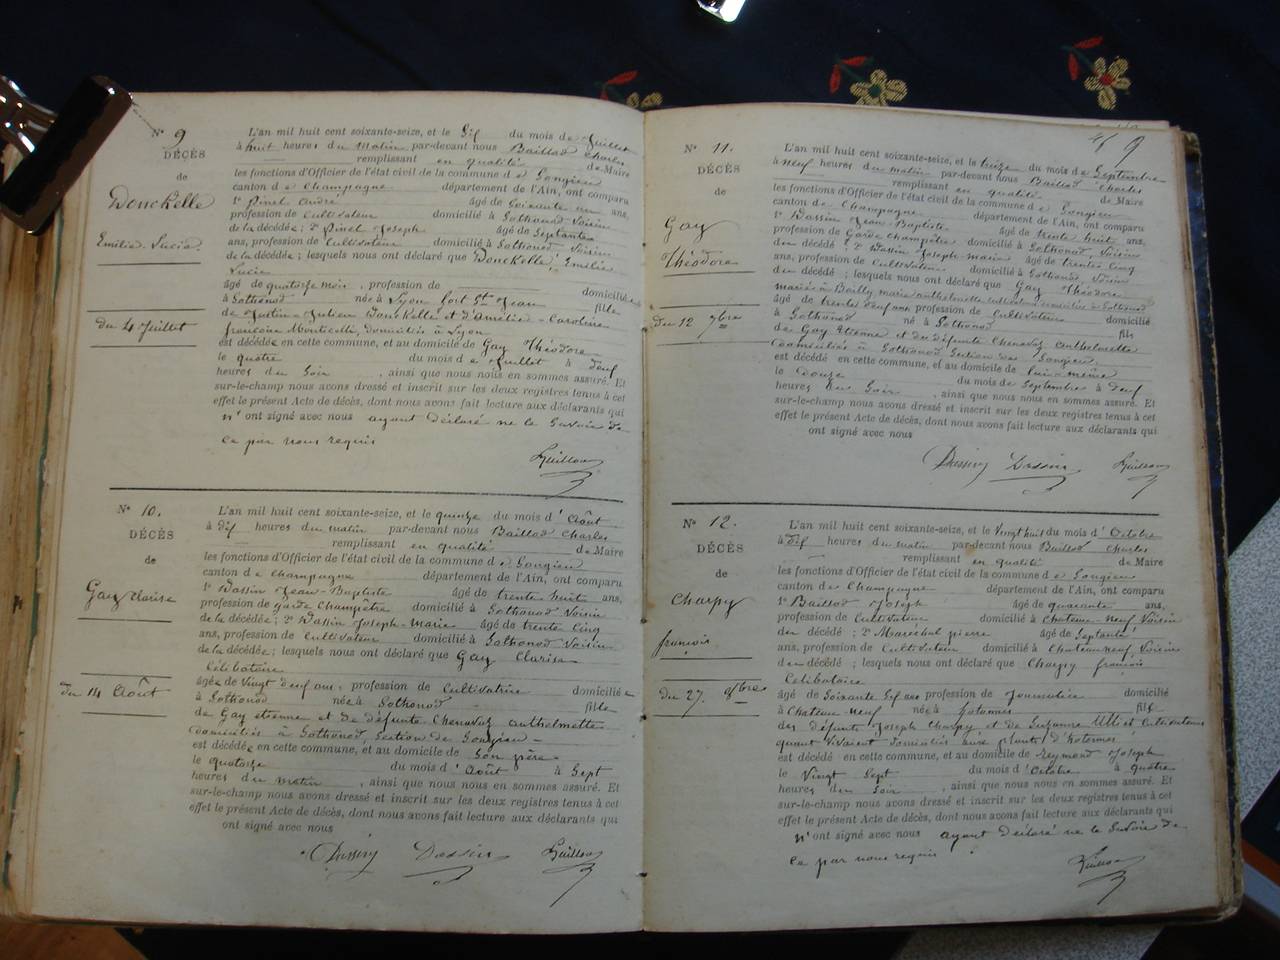 N° 9
DÉCÈS
de
Donckelle
Emélie Lucie
du 4 Juillet
L'an mil huit cent soixante-seize, et le Six du mois de Juillet
à huit heures du Matin par-devant nous Baillod Charles
remplissant en qualité de Maire
les fonctions d'Officier de l'état civil de la commune de Songieu
canton de Champagne département de l'Ain, ont comparu
1° Pinel André âgé de Soixante un ans,
profession de Cultivateur domicilié à Sothonod Voisin
de la décédée ; 2° Pinel Joseph âgé de Septante
ans, profession de Cultivateur domicilié à Sothonod, Voisin
de la décédée ; lesquels nous ont déclaré que Donckelle, Emélie
Lucie
âgé de quatorze mois, profession de domiciliée
à Sothonod née à Lyon fort St Jean fille
de Justin-Julien Donckelle et d'Amélie-Caroline
françoise Monticelli, domiciliés à Lyon
est décédée en cette commune, et au domicile de Gay Théodore
le quatre du mois de Juillet à
heures du Soir, ainsi que nous nous en sommes assuré. Et
sur-le-champ nous avons dressé et inscrit sur les deux registres tenus à cet
effet le présent Acte de décès, dont nous avons fait lecture aux déclarants qui
n'ont signé avec nous ayant déclaré ne le Savoir de
ce par nous requis
N° 10.
DÉCÈS
de
Gay Clarise
du 14 Août
L'an mil huit cent soixante-seize, et le quinze du mois d'Août
à dix heures du matin par-devant nous Baillod Charles
remplissant en qualité de Maire
les fonctions d'Officier de l'état civil de la commune de Songieu
canton de Champagne département de l'Ain, ont comparu
1° Dassin Jean-Baptiste âgé de trente huit ans,
profession de garde Champêtre domicilié à Sothonod Voisin
de la décédée ; 2° Dassin Joseph-Marie âgé de trente Cinq
ans, profession de Cultivateur domicilié à Sothonod Voisin
de la décédée ; lesquels nous ont déclaré que Gay Clarise
Célibataire
âgée de Vingt neuf ans, profession de Cultivatrice domiciliée
à Sothonod née à Sothonod fille
de Gay etienne et de défunte Chenavaz anthelmette
domiciliés à Sothonod Section de Songieu
est décédée en cette commune, et au domicile de Son père
le quatorze du mois d'Août à Sept
heures du matin, ainsi que nous nous en sommes assuré. Et
sur-le-champ nous avons dressé et inscrit sur les deux registres tenus à cet
effet le présent Acte de décès, dont nous avons fait lecture aux déclarants qui
ont signé avec nous
Dassin Dassin
9
N° 11.
DÉCÈS
de
Gay
Théodore
du 12 7bre
L'an mil huit cent soixante-seize, et le treize du mois de Septembre
à neuf heures du matin par-devant nous Baillod Charles
remplissant en qualité de Maire
les fonctions d'Officier de l'état civil de la commune de Songieu
canton de Champagne département de l'Ain, ont comparu
1° Dassin Jean-Baptiste âgé de trente huit ans,
profession de Garde champêtre domicilié à Sothonod, Voisin
du décédé ; 2° Dassin Joseph-marie âgé de trente Cinq
ans, profession de Cultivateur domicilié à Sothonod Voisin
du décédé ; lesquels nous ont déclaré que Gay Théodore
marié à Bailly marie anthelmette cultivatrice domiciliée à Sothonod
âgé de trente deux ans profession de Cultivateur domicilié
à Sothonod né à Sothonod fils
de Gay Etienne et de défunte Chenavaz anthelmette
domiciliés à Sothonod Section de Songieu
est décédé en cette commune, et au domicile de lui-même
le douze du mois de Septembre à
heures du Soir, ainsi que nous nous en sommes assuré. Et
sur-le-champ nous avons dressé et inscrit sur les deux registres tenus à cet
effet le présent Acte de décès, dont nous avons fait lecture aux déclarants qui
ont signé avec nous
Dassin Dassin
N° 12.
DÉCÈS
de
Charpy
francois
du 27. 8bre
L'an mil huit cent soixante-seize, et le Vingt huit du mois d'Octobre
à dix heures du matin par-devant nous Baillod Charles
remplissant en qualité de Maire
les fonctions d'Officier de l'état civil de la commune de Songieu
canton de Champagne département de l'Ain, ont comparu
1° Baillod Joseph âgé de quarante ans,
profession de Cultivateur domicilié à Chateau-neuf Voisin
du décédé ; 2° Maréchal pierre âgé de Septante
ans, profession de Cultivateur domicilié à Chateauneuf, Voisin
du décédé ; lesquels nous ont déclaré que Charpy francois
Célibataire
âgé de Soixante Six ans profession de Journalier domicilié
à Chateau-neuf né à hotonnes fils
des défunts Joseph Charpy et de Suzanne et Cultivateurs
quant Vivaient domiciliés d'hotonnes
est décédé en cette commune, et au domicile de Reymond Joseph
le Vingt Sept du mois d'Octobre à quatre
heures du Soir, ainsi que nous nous en sommes assuré. Et
sur-le-champ nous avons dressé et inscrit sur les deux registres tenus à cet
effet le présent Acte de décès, dont nous avons fait lecture aux déclarants qui
n'ont signé avec nous ayant déclaré ne le Savoir de
ce par nous requis